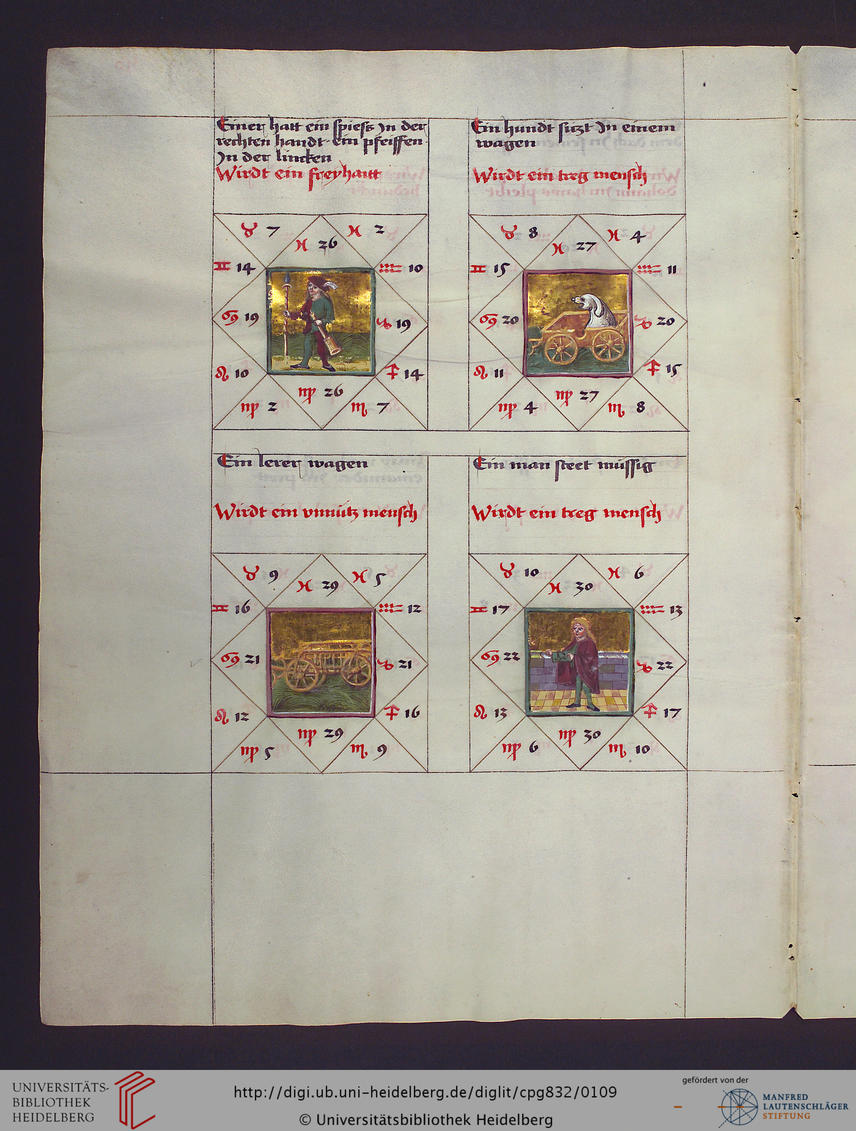 Einer hatt ein spiess Jn der
rechten handt ein pfeiffen
Jn der lincken
Wirdt ein freyhartt
♉ 7
♓ 26
♓ 2
♊ 14
♒ 10
♋ 19
♑ 19
♌ 10
♐ 14
♍ 2
♍ 26
♏ 7
Ein hundt sitzt Jn einem
wagen
Wirdt ein treg mensch
♉ 8
♓ 27
♓ 4
♊ 15
♒ 11
♋ 20
♑ 20
♌ 11
♐ 15
♍ 4
♍ 27
♏ 8
Ein lerer wagen
Wirdt ein vnnütz mensch
♉ 9
♓ 29
♓ 5
♊ 16
♒ 12
♋ 21
♑ 21
♌ 12
♐ 16
♍ 5
♍ 29
♏ 9
Ein man steet müssig
Wirdt ein treg mensch
♉ 10
♓ 30
♓ 6
♊ 17
♒ 13
♋ 22
♑ 22
♌ 13
♐ 17
♍ 6
♍ 30
♏ 10
UNIVERSITÄTS-
BIBLIOTHEK
HEIDELBERG
http://digi.ub.uni-heidelberg.de/diglit/cpg832/0109
© Universitätsbibliothek Heidelberg
gefördert von der
MANFRED
LAUTENSCHLÄGER
STIFTUNG